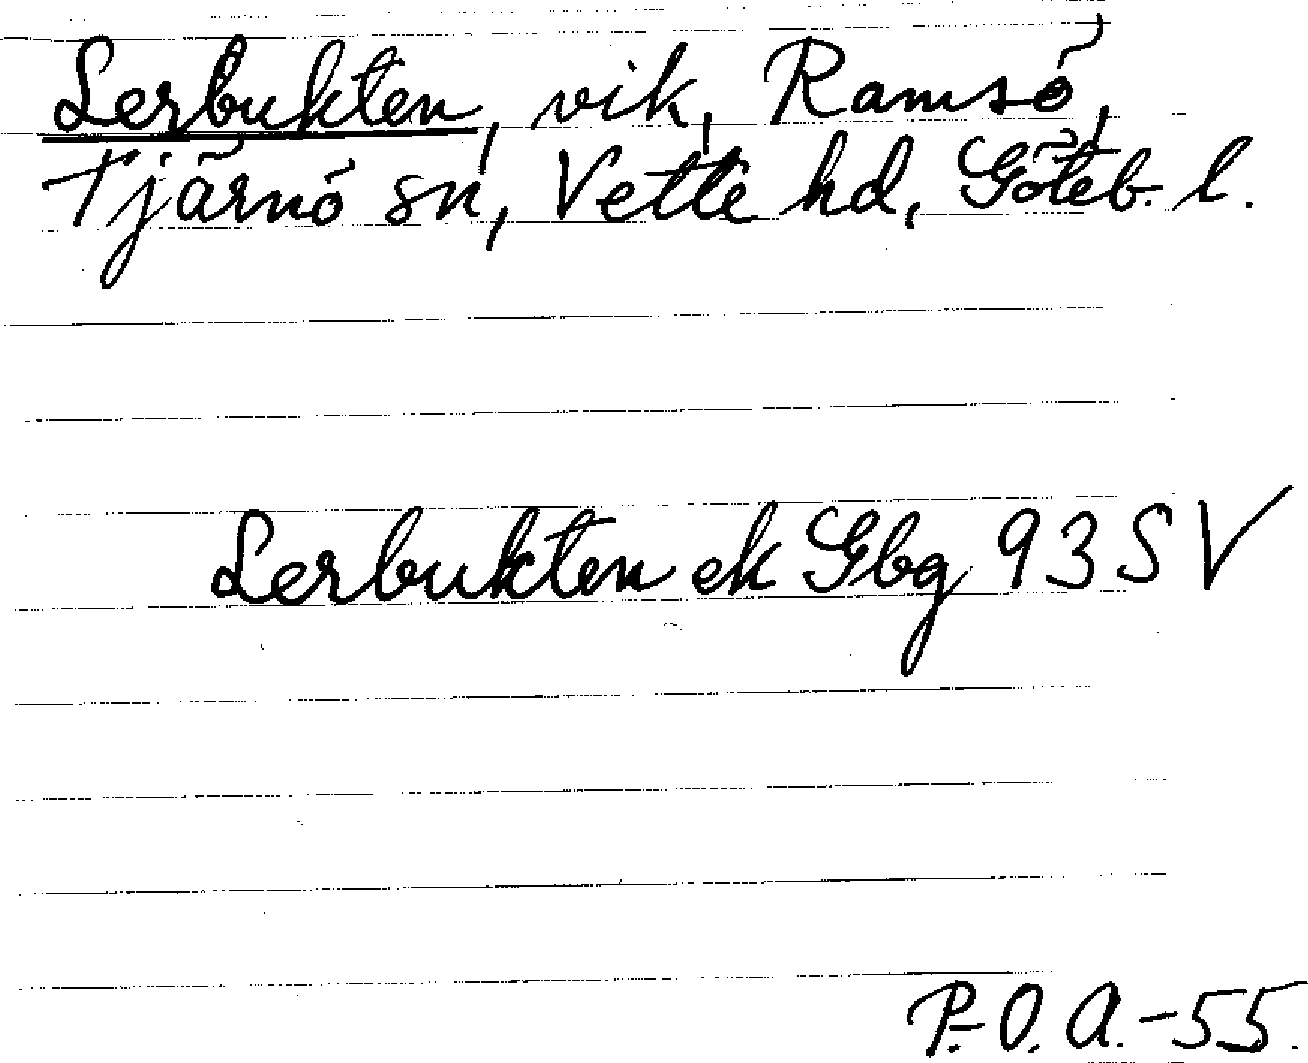 Lerbukten, vik, Ramsö,
Tjärnö sn, Vette hd, Göteb. l.
Lerbukten ek Gbg 93 SV
P.-O. A. -55.